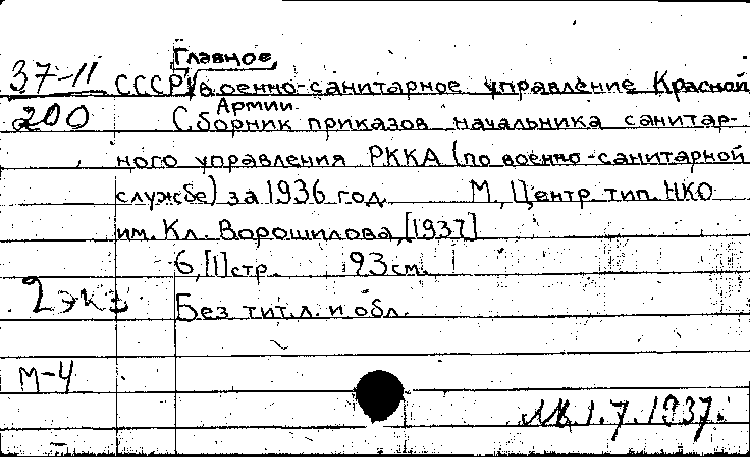 Главное,
37-11 СССР военно-санитарное управление Красной
Армии.
200 Сборник приказов начальника санитар-
ного управления РККА (по военно-санитарной
службе) за 1936 год. М., Центр. тип. НКО
им. Кл. Ворошилова, [1937]
6, [1] стр. 23 см.
2 экз. Без тит. л. и обл.
М-4
1.7.1937.